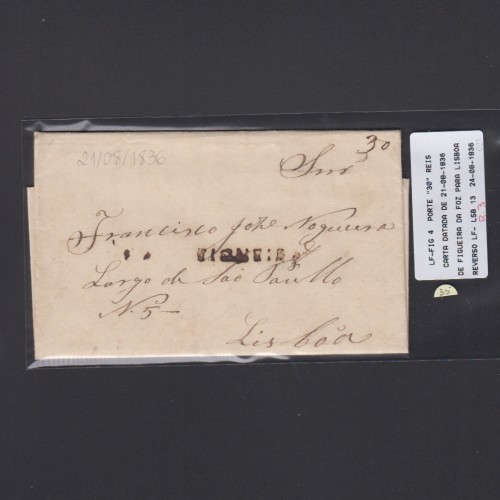 21/08/1836
30
Snr
Francisco José Nogueira
FIGUEIRA
Largo de São Paullo
N. 5
Lisbôa
LF-FIG 4 PORTE "30" REIS
CARTA DATADA DE 21-08-1836
DE FIGUEIRA DA FOZ PARA LISBOA
REVERSO LF- LSB 13 24-08-1836
R.3
35